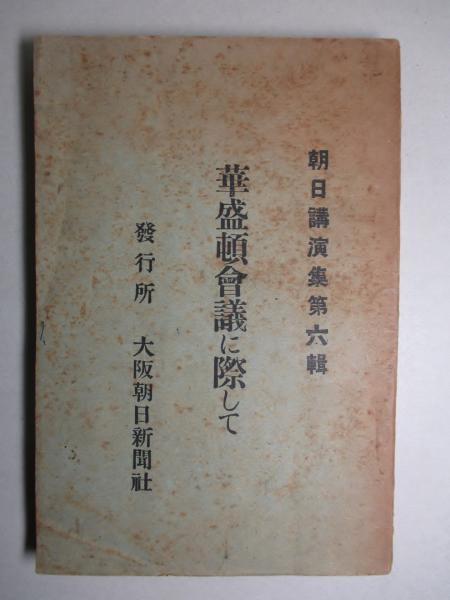 朝日講演集第六輯
華盛頓會議に際して
發行所 大阪朝日新聞社